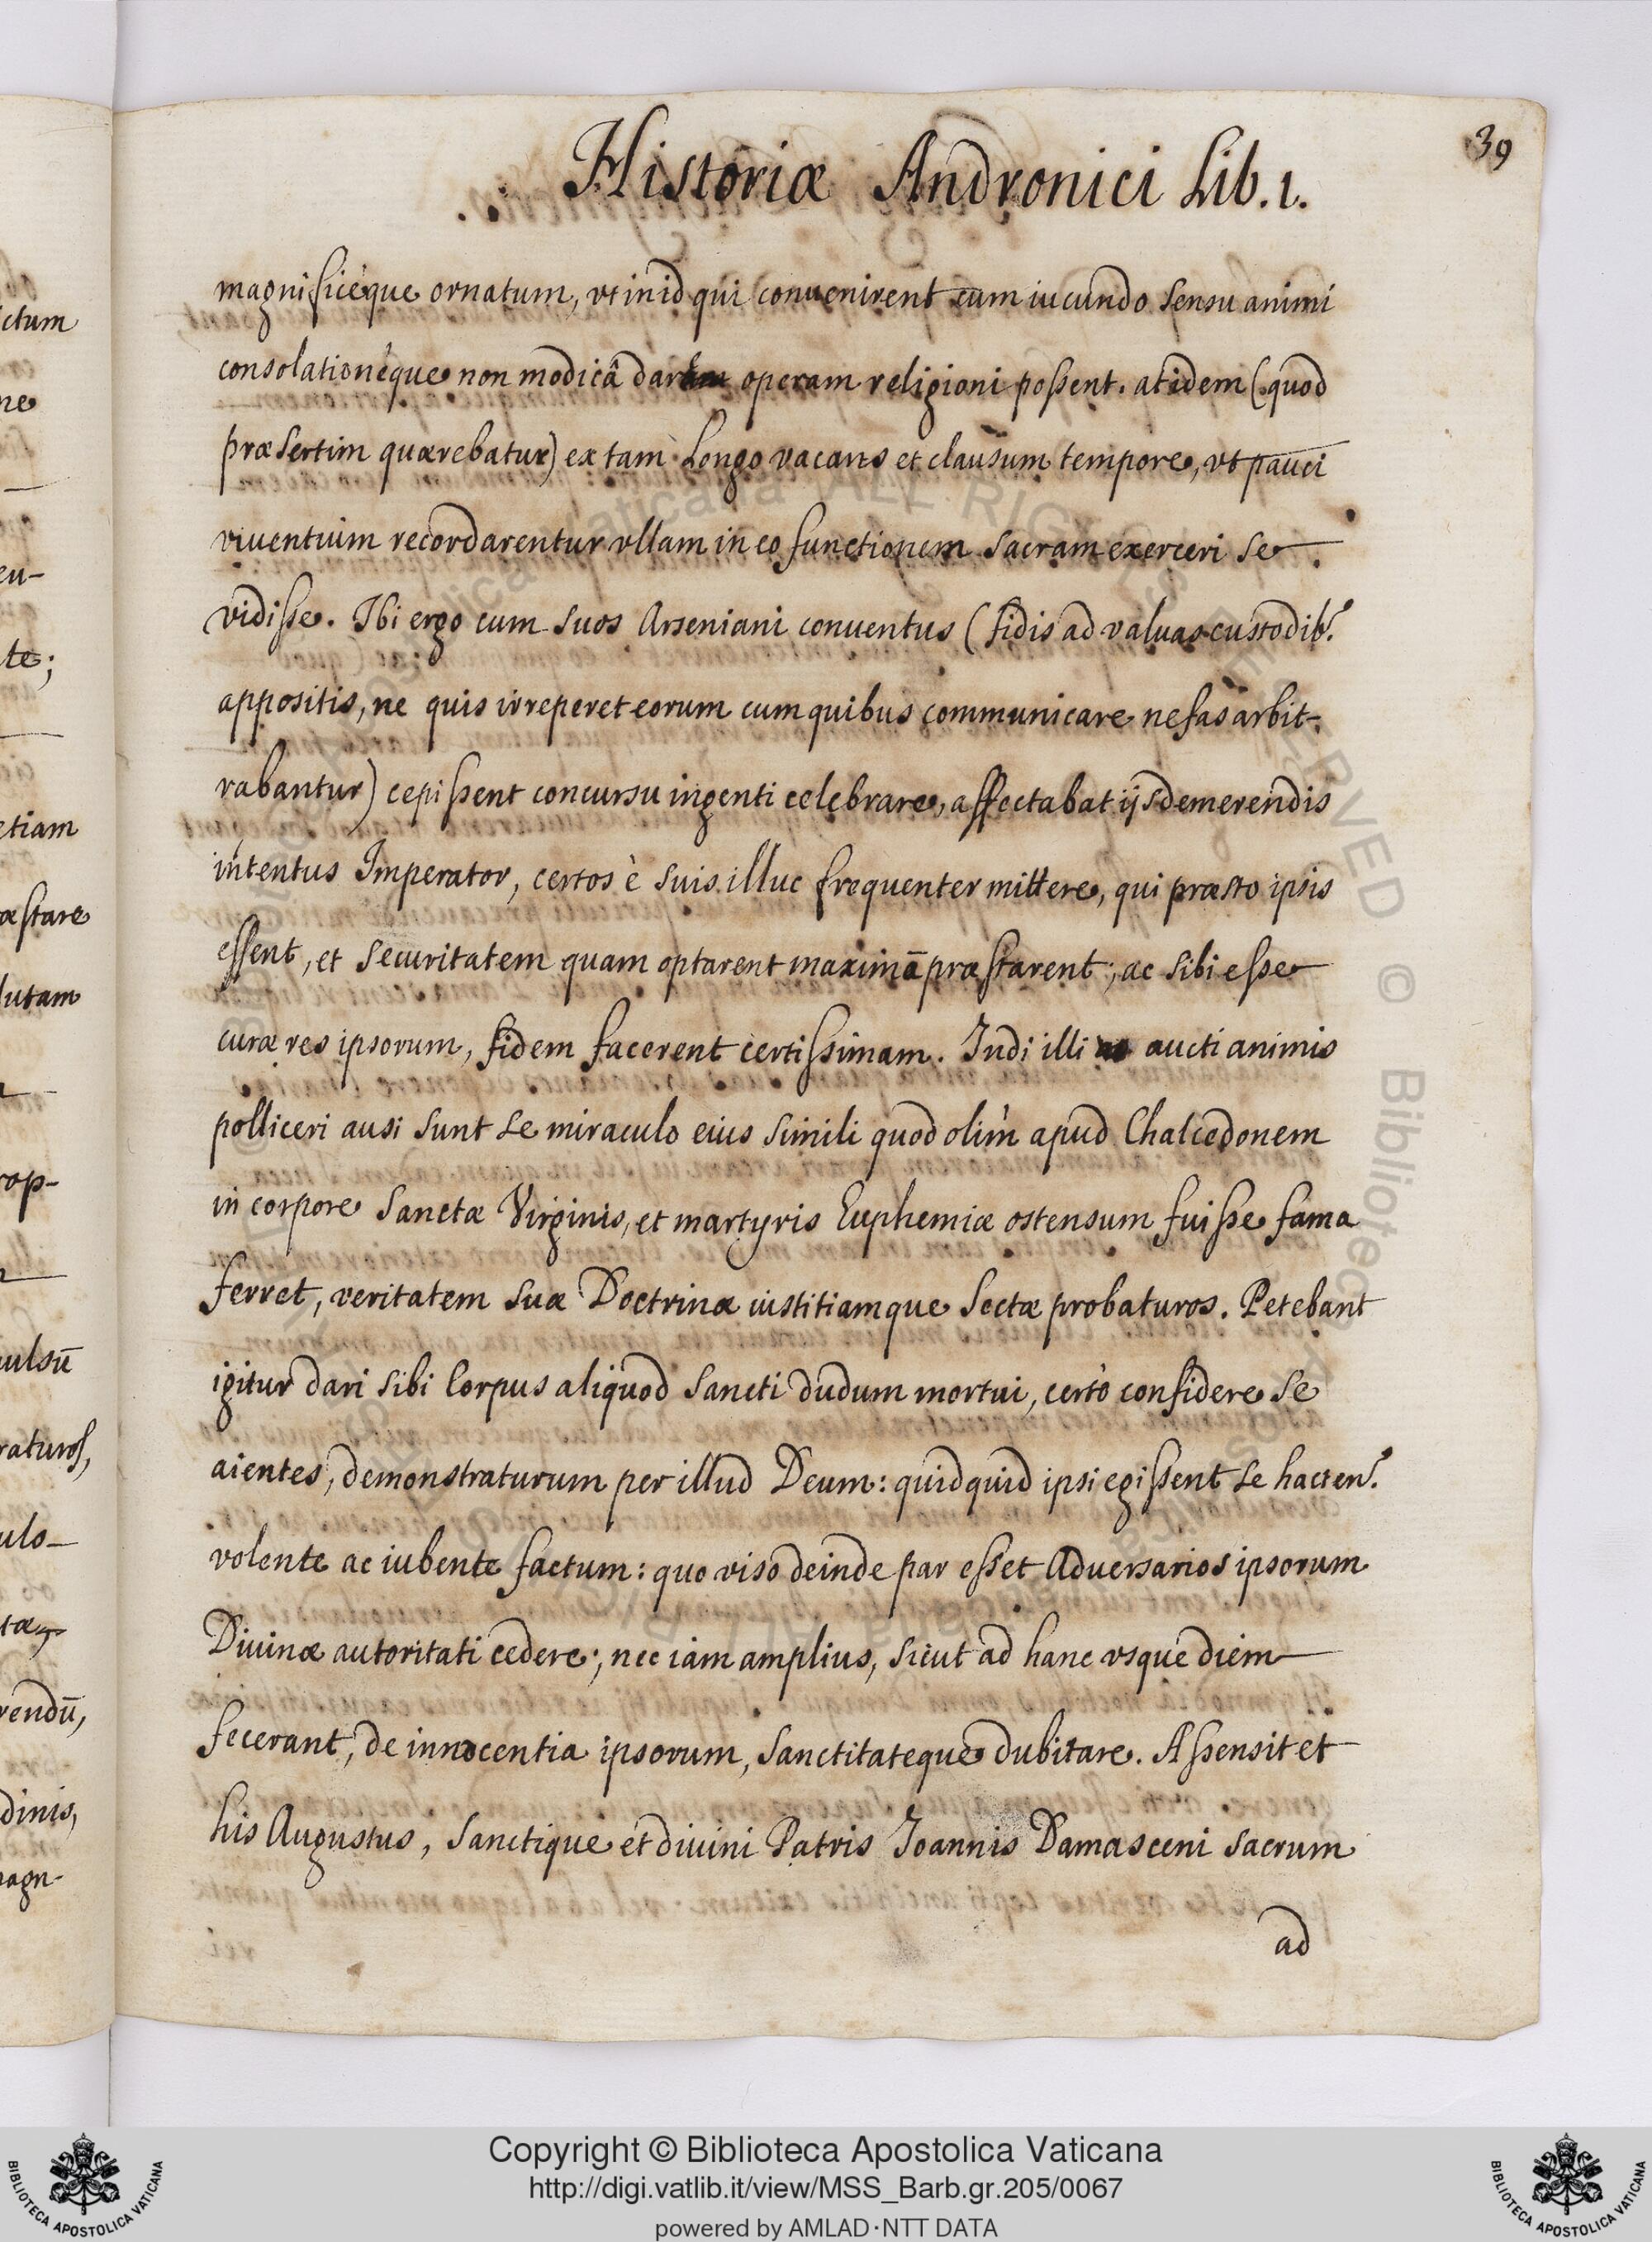 39
Historiæ Andronici Lib. 1.
magnificèque ornatum, vt in id qui conuenirent cum iucundo sensu animi
consolationéque non modicâ dare operam religioni possent. at idem (quod
præsertim quærebatur) ex tam Longo vacans et clausum tempore, vt pauci
viuentium recordarentur vllam in eo functionem sacram exerceri se
vidisse. Ibi ergo cum suos Arseniani conuentus (fidis ad valuas custodib.
appositis, ne quis irreperet eorum cum quibus communicare nefas arbit-
rabantur) cepissent concursu ingenti celebrare, affectabat ijs demerendis
intentus Imperator, certos è suis illuc frequenter mittere, qui præsto ipsis
essent, et securitatem quam optarent maximā præstarent; ac sibi esse
curæ res ipsorum, fidem facerent certissimam. Indi illi aucti animis
polliceri ausi sunt se miraculo eius simili quod olim apud Chalcedonem
in corpore Sanctæ Virginis, et martyris Euphemiæ ostensum fuisse fama
ferret, veritatem suæ Doctrinæ iustitiamque Sectæ probaturos. Petebant
igitur dari sibi Corpus aliquod Sancti dudum mortui, certò confidere se
aientes, demonstraturum per illud Deum: quidquid ipsi egissent se hacten.
volente ac iubente factum: quo viso deinde par esset Aduersarios ipsorum
Diuinæ autoritati cedere; nec iam amplius, sicut ad hanc vsque diem
fecerant, de innocentia ipsorum, sanctitateque dubitare. Assensit et
his Augustus, Sanctique et diuini Patris Joannis Damasceni sacrum
ad
ctum
ne
eu-
te;
etiam
æstare
lutam
rop-
ulsū
raturos,
ulo-
tæ,
rendū,
dinis,
magn-
Copyright © Biblioteca Apostolica Vaticana
http://digi.vatlib.it/view/MSS_Barb.gr.205/0067
powered by AMLAD·NTT DATA
BIBLIOTECA APOSTOLICA VATICANA
BIBLIOTECA APOSTOLICA VATICANA